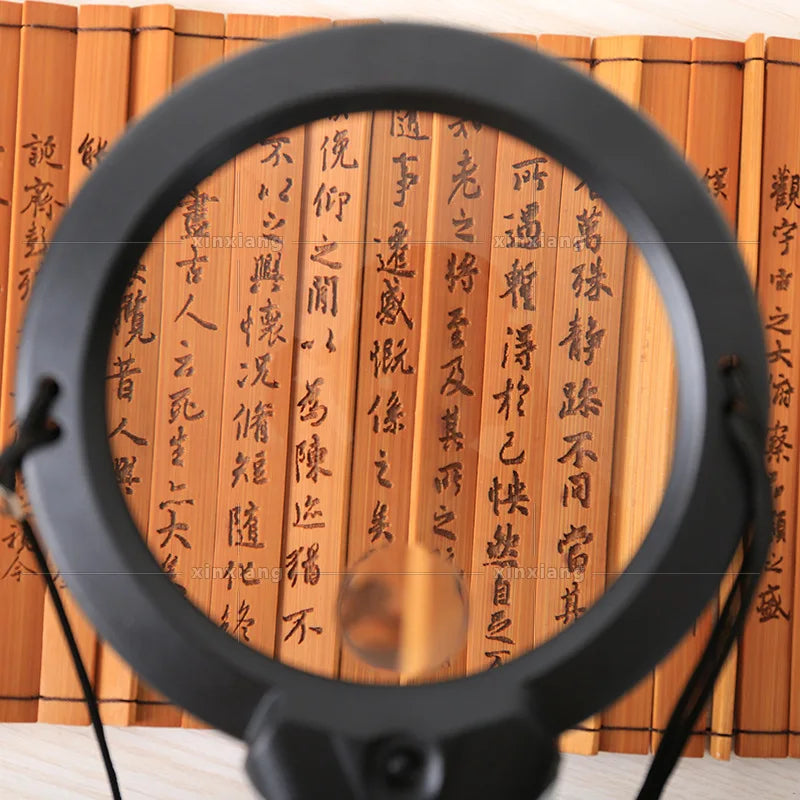 觀宇宙之大俯察品類之盛
萬殊静躁不同當其
所遇暫得於己怏然自足不
老之將至及其所之
隨事遷感慨係之矣
俛仰之間以為陳迹猶不
不以之興懷况脩短隨化終
盡古人云死生亦大矣
攬昔人興
能
誕齊彭殤
視今
xinxiang
xinxiang
xinxiang
xinxiang